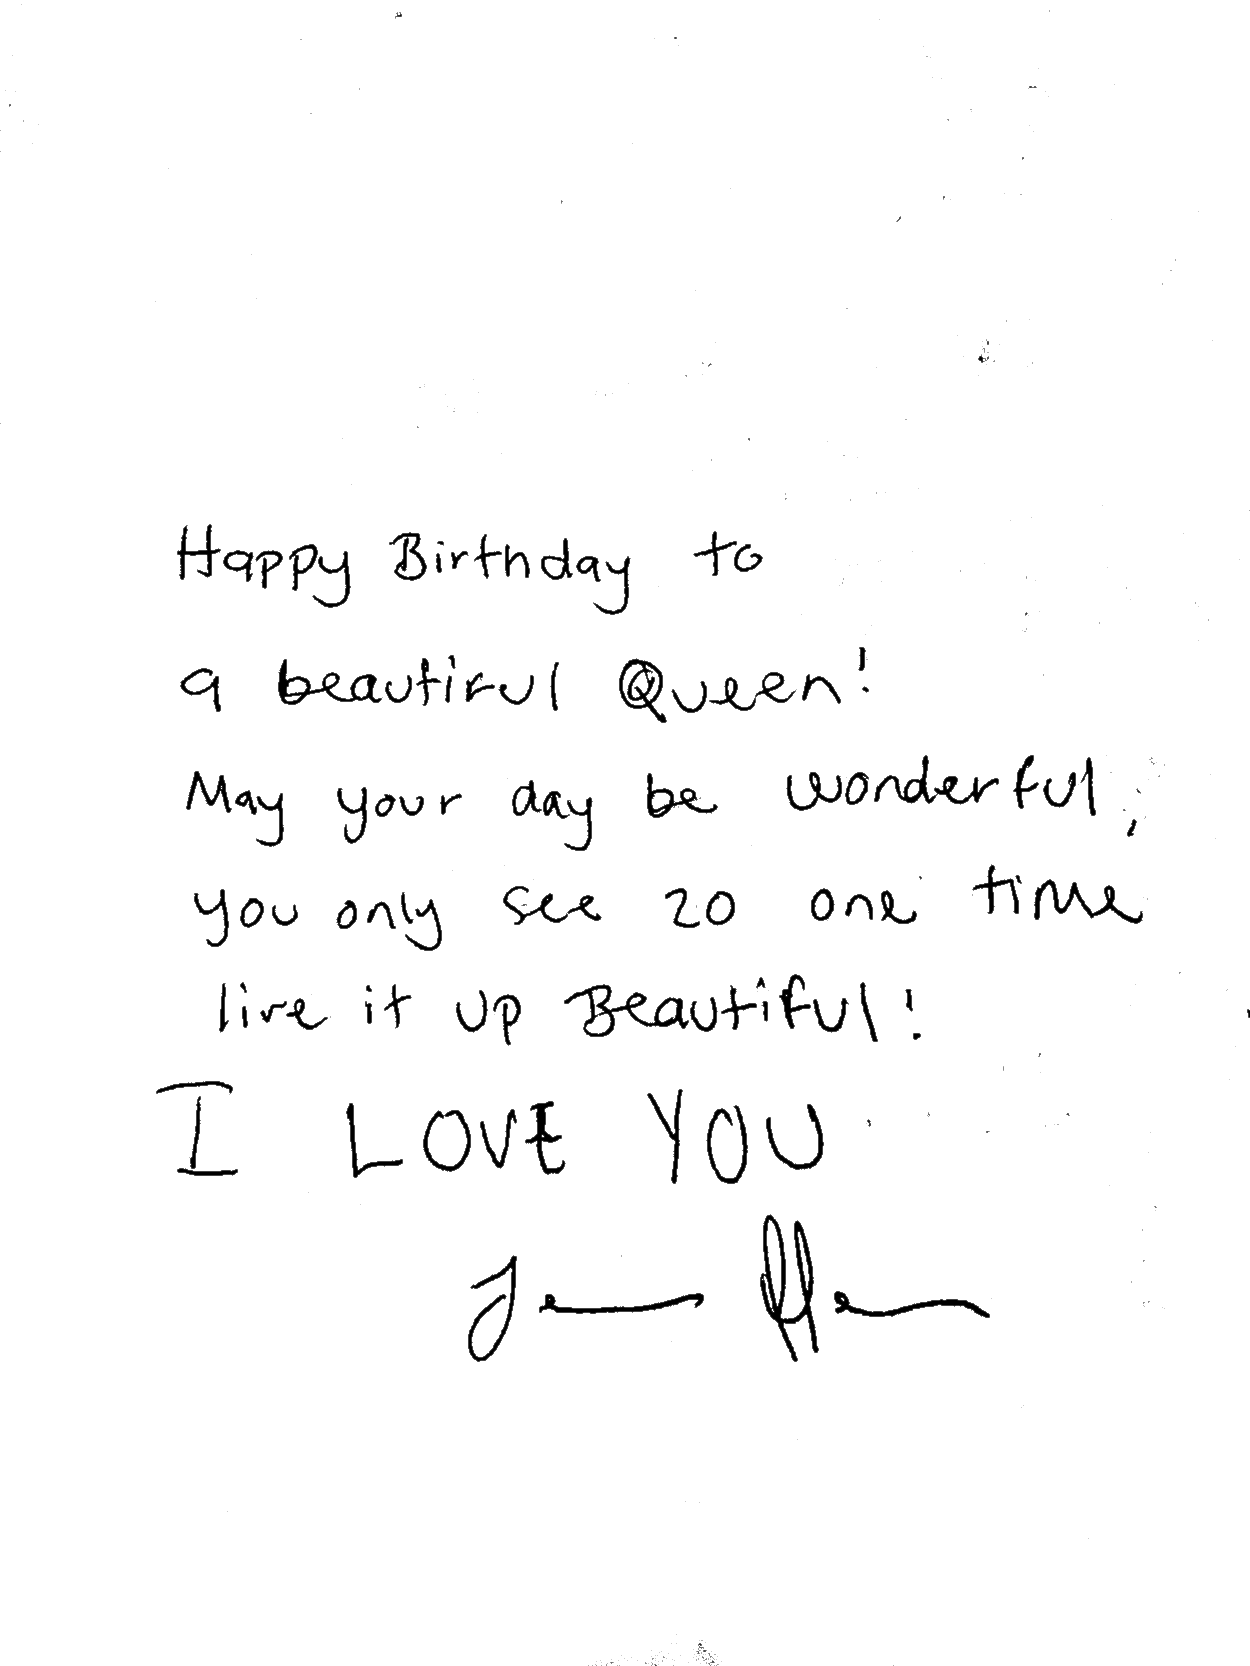 Happy Birthday to
a beautiful Queen!
May your day be wonderful,
you only see 20 one time
live it up Beautiful!
I LOVE YOU